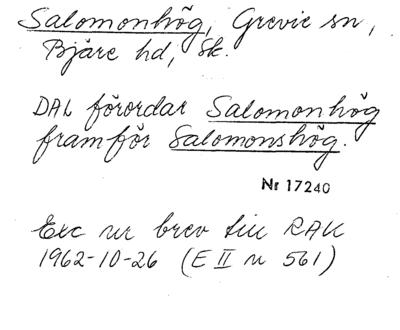 Salomonhög, Grevie sn,
Bjäre hd, Sk.
DAL förordar Salomonhög
framför Salomonshög.
Nr 17240
Exc ur brev till RAK
1962-10-26 (E II n 561)